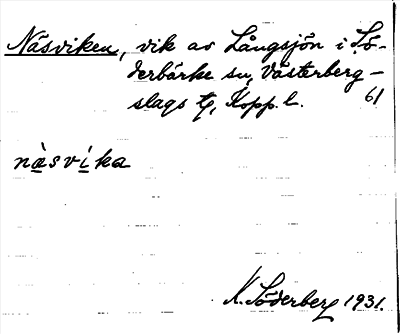 Näsviken, vik av Långsjön i Sö-
derbärke sn, Västerberg-
slags tg, Kopp. l.
61
nàsvíka
K. Söderberg 1931.